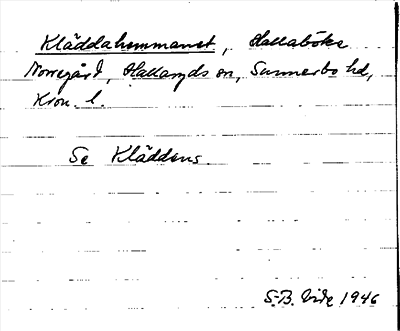 Kläddahemmanet, Hallaböke
Norregård, Hallaryds sn, Sunnerbo hd,
Kron. l.
Se Kläddens
S.-B. Vide 1946